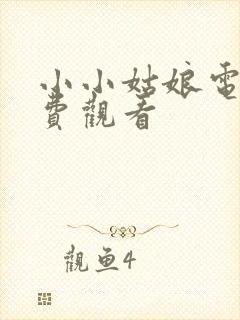 小小姑娘電
費觀看
觀鱼4